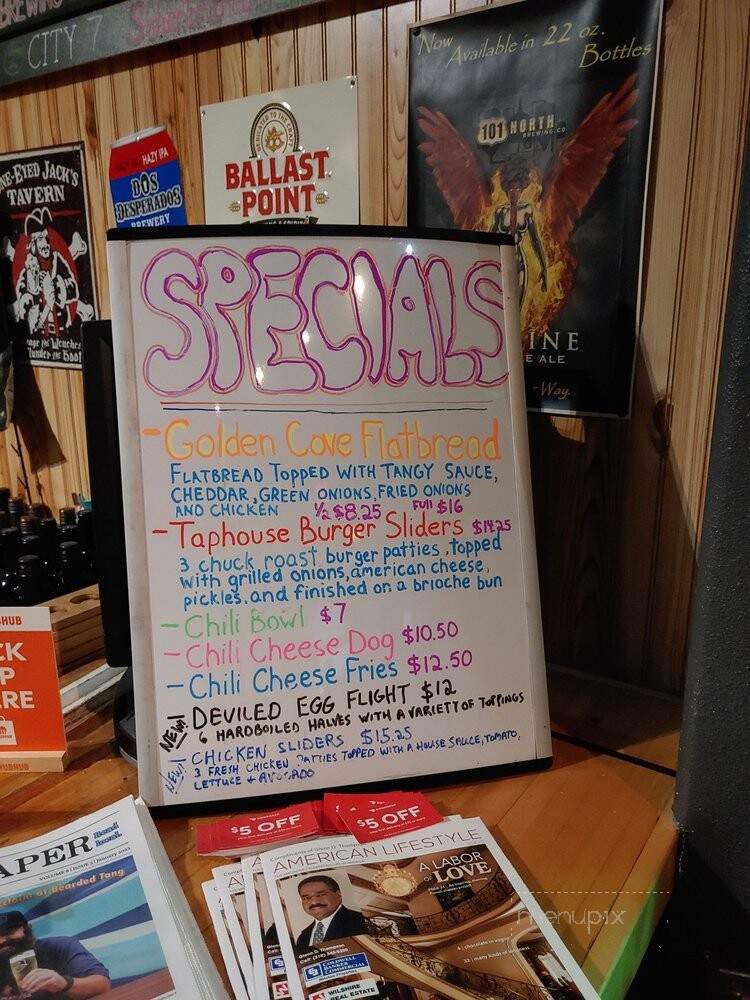 CITY 7
Now Available in 22 oz. Bottles
101 NORTH
BREWING CO
INE
E ALE
Way...
ONE-EYED JACK'S
TAVERN
HAZY IPA
DOS
DESPERADOS
BREWERY
BALLAST
POINT
SPECIALS
- Golden Cove Flatbread
FLATBREAD TOPPED WITH TANGY SAUCE,
CHEDDAR, GREEN ONIONS, FRIED ONIONS
AND CHICKEN 1/2 $8.25 FULL $16
- Taphouse Burger Sliders $14.25
3 chuck roast burger patties, topped
with grilled onions, american cheese,
pickles, and finished on a brioche bun
- Chili Bowl $7
- Chili Cheese Dog $10.50
- Chili Cheese Fries $12.50
NEW! - DEVILED EGG FLIGHT $12
6 HARDBOILED HALVES WITH A VARIETY OF TOPPINGS
NEW! - CHICKEN SLIDERS $15.25
3 FRESH CHICKEN PATTIES TOPPED WITH A HOUSE SAUCE, TOMATO,
LETTUCE + AVOCADO
HUB
CK
P
RE
$5 OFF
$5 OFF
APER Read Local.
VOLUME 8 | ISSUE 1 | January 2022
of Bearded Tang
AMERICAN LIFESTYLE
A LABOR
of LOVE
Glenn D. Thompson
COLDWELL
BANKER
COMMERCIAL
WILSHIRE
REAL ESTATE
menupix